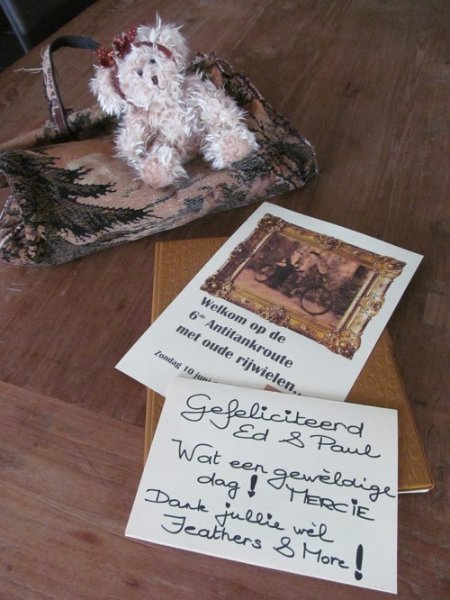 Welkom op de
6de Antitankroute
met oude rijwielen...
Zondag 10 juni
Gefeliciteerd
Ed & Paul
Wat een gewèldige
dag! MERCIE
Dank jullie wèl
Feathers & More!